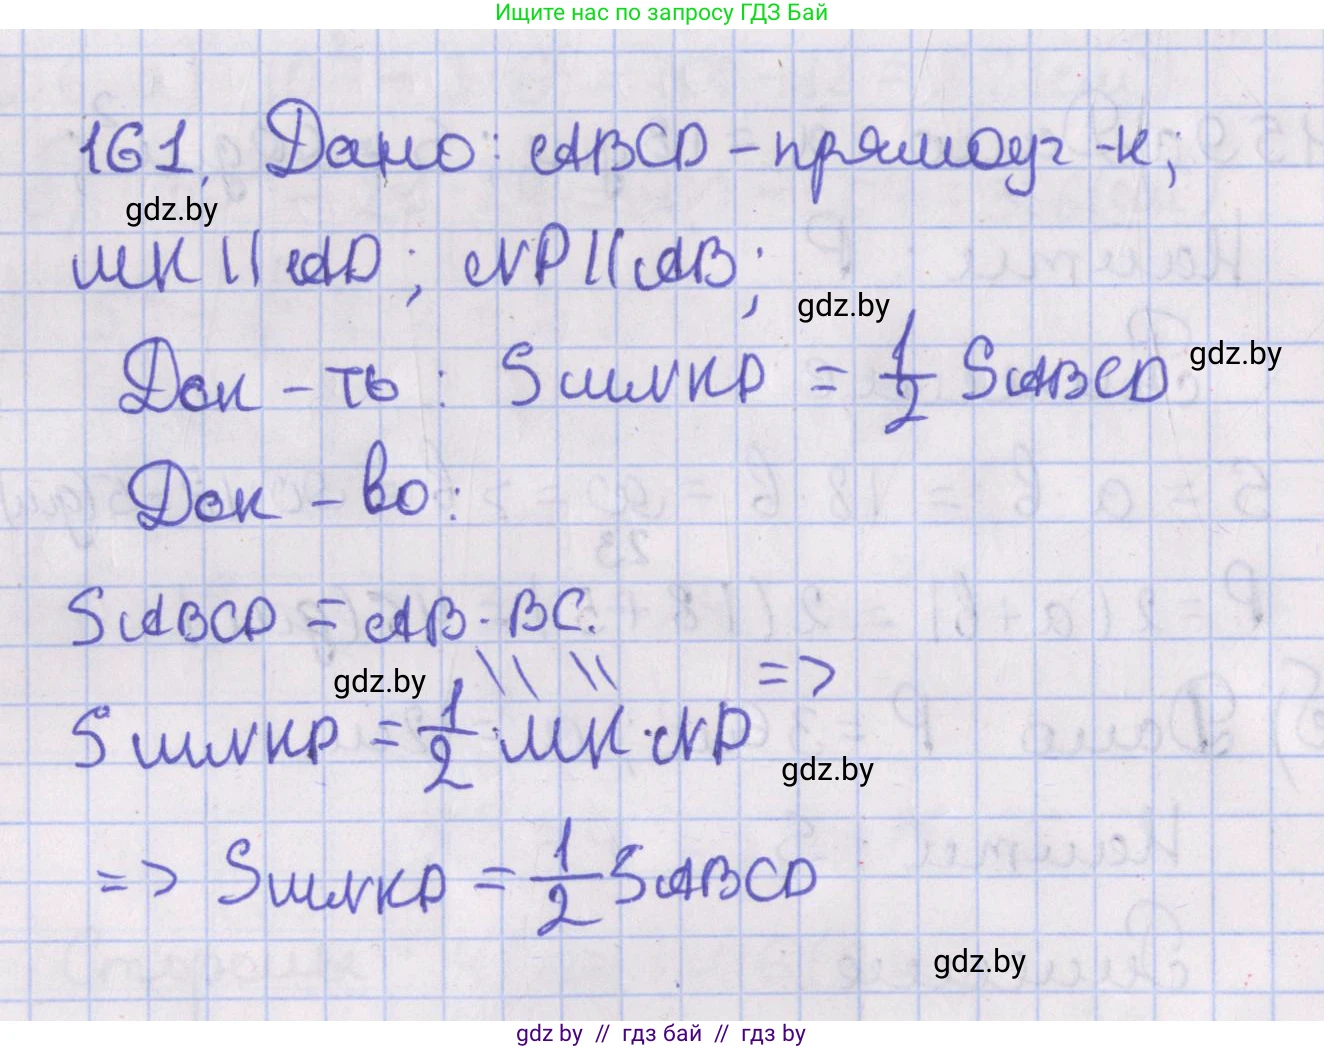 Ищите нас по запросу ГДЗ Бай
161. Дано: ABCD - прямоуг-к;
gdz.by
MK || AD; NP || AB;
gdz.by
Док-ть: SMNKP = 1/2 SABCD
gdz.by
Док-во:
SABCD = AB · BC.
gdz.by
\\ \\ =>
SMNKP = 1/2 · MK · NP
gdz.by
=> SMNKP = 1/2 SABCD
gdz.by
gdz by // гдз бай // гдз by